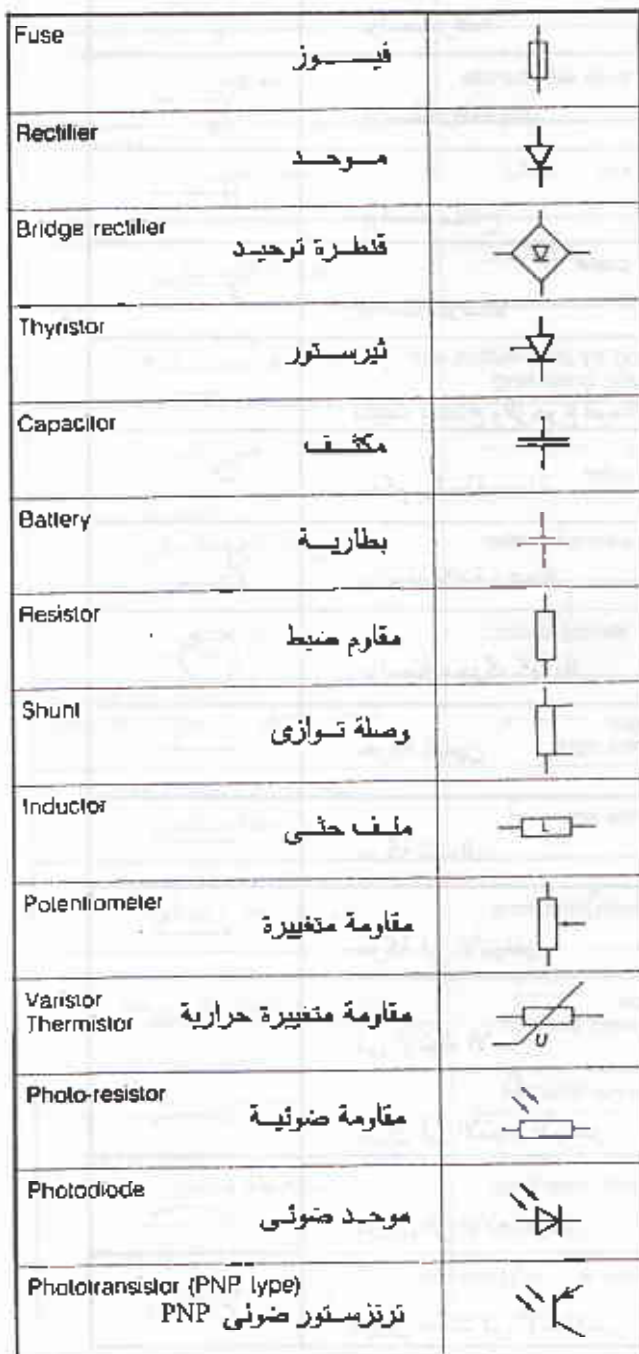 Fuse
فيـــوز
Rectifier
مـوحـد
Bridge rectifier
قنطـرة توحيـد
Thyristor
ثيرسـتور
Capacitor
مكثـف
Battery
بطاريـة
Resistor
مقاوم ضبط
Shunt
وصلة تـوازى
Inductor
L
ملـف حثـى
Potentiometer
مقاومة متغييرة
Varistor
Thermistor
U
مقاومة متغييرة حرارية
Photo-resistor
مقاومة ضوئيـة
Photodiode
موحـد ضوئـى
Phototransistor (PNP type)
ترنزسـتور ضوئى PNP